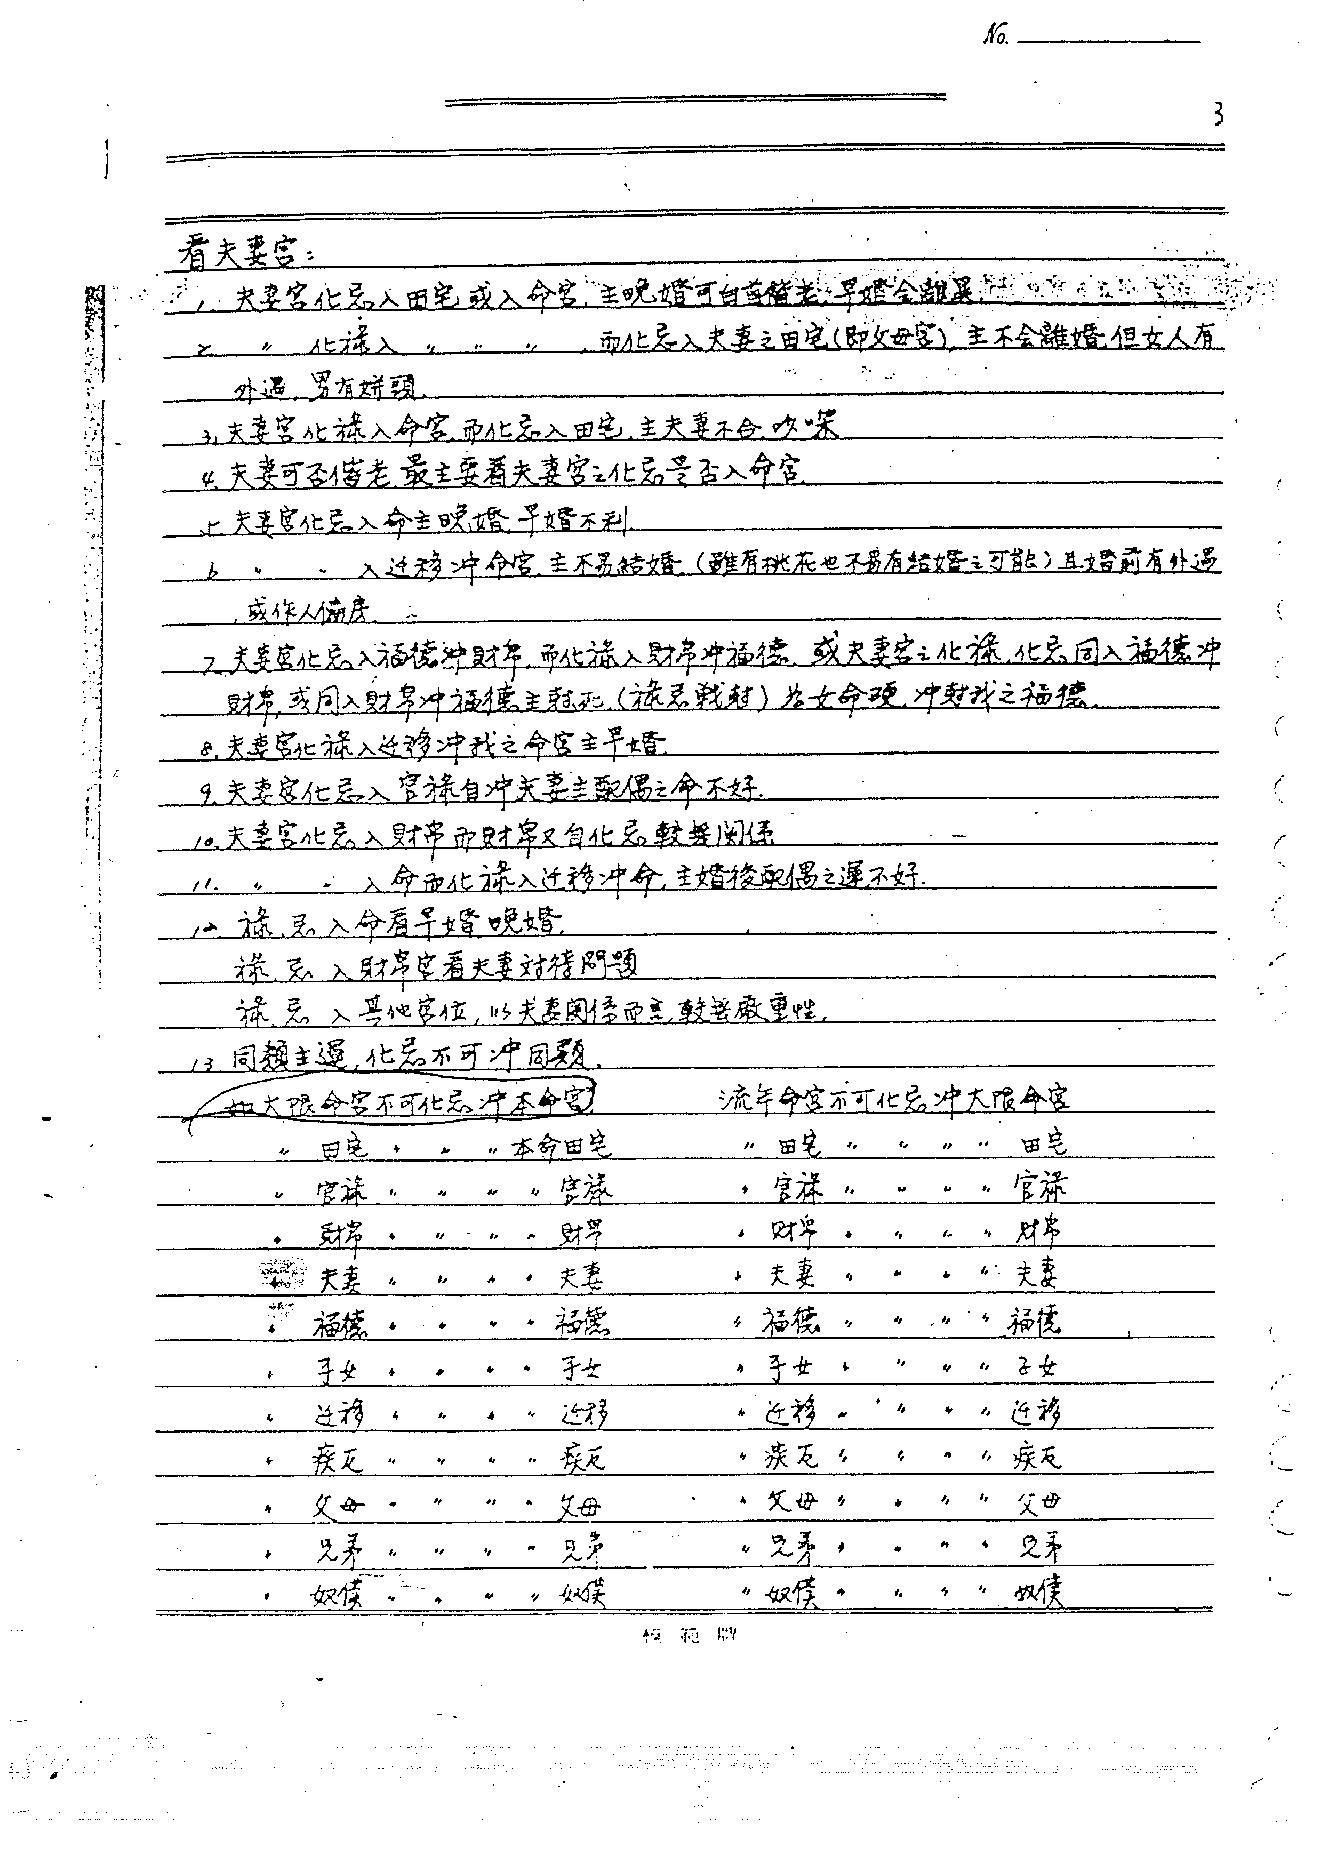 No.
3
看夫妻宮:
1. 夫妻宮化忌入田宅或入命宮,主晚婚可白首偕老,早婚会離異.
2 〃 化祿入 〃 〃 〃 ,而化忌入夫妻之田宅(即父母宮),主不会離婚,但女人有
外遇,男有姘頭.
3. 夫妻宮化祿入命宮,而化忌入田宅,主夫妻不合,吵
4. 夫妻可否偕老,最主要看夫妻宮之化忌是否入命宮.
5 夫妻宮化忌入命主晚婚,早婚不利.
6 〃 〃 入迁移冲命宮,主不易結婚.(雖有桃花也不易有結婚之可能)且婚前有外遇
,或作人偏房.
7. 夫妻宮化忌入福德冲財帛,而化祿入財帛冲福德,或夫妻宮之化祿,化忌同入福德冲
財帛,或同入財帛冲福德主尅死,(祿忌戰尅)為女命硬,冲尅我之福德.
8. 夫妻宮化祿入迁移冲我之命宮主早婚.
9. 夫妻宮化忌入官祿自冲夫妻主配偶之命不好.
10. 夫妻宮化忌入財帛而財帛又自化忌較無関係
11. 〃 〃 入命而化祿入迁移冲命,主婚後配偶之運不好.
12 祿,忌入命看早婚晚婚.
祿,忌入財帛宮看夫妻対待問題
祿,忌入其他宮位,以夫妻関係而言,較無嚴重性.
13 同類主運,化忌不可冲同類.
如大限命宮不可化忌冲本命宮 流年命宮不可化忌冲大限命宮
〃 田宅 〃 〃 〃 本命田宅 〃 田宅 〃 〃 〃 〃 田宅
〃 官祿 〃 〃 〃 〃 官祿 〃 官祿 〃 〃 〃 〃 官祿
〃 財帛 〃 〃 〃 〃 財帛 〃 財帛 〃 〃 〃 〃 財帛
〃 夫妻 〃 〃 〃 〃 夫妻 〃 夫妻 〃 〃 〃 〃 夫妻
〃 福德 〃 〃 〃 〃 福德 〃 福德 〃 〃 〃 〃 福德
〃 子女 〃 〃 〃 〃 子女 〃 子女 〃 〃 〃 〃 子女
〃 迁移 〃 〃 〃 〃 迁移 〃 迁移 〃 〃 〃 〃 迁移
〃 疾厄 〃 〃 〃 〃 疾厄 〃 疾厄 〃 〃 〃 〃 疾厄
〃 父母 〃 〃 〃 〃 父母 〃 父母 〃 〃 〃 〃 父母
〃 兄弟 〃 〃 〃 〃 兄弟 〃 兄弟 〃 〃 〃 〃 兄弟
〃 奴僕 〃 〃 〃 〃 奴僕 〃 奴僕 〃 〃 〃 〃 奴僕
模範牌